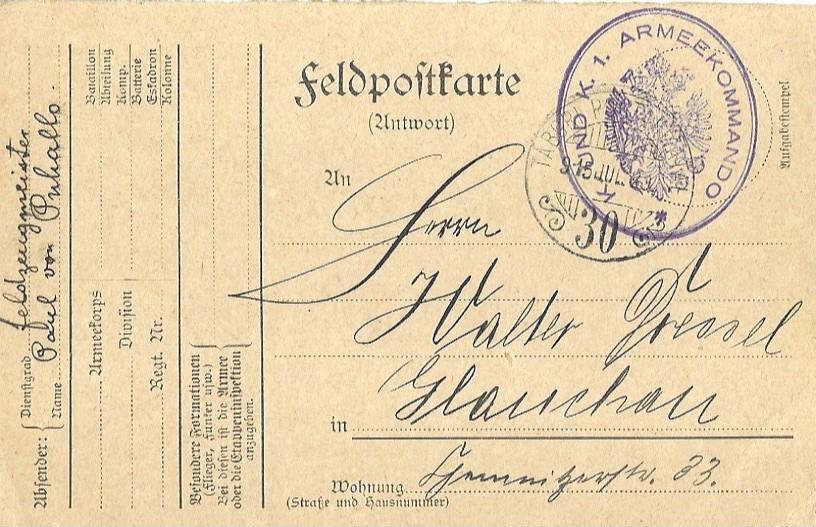 Feldpostkarte
(Antwort)
An
Herrn
Walter Dressel
in Glauchau
Wohnung
(Straße und Hausnummer)
Chemnitzerstr. 33.
Aufgabestempel
K. UND K. 1. ARMEEKOMMANDO
30
Absender:
Dienstgrad Feldzeugmeister
Name Paul von Puhallo.
Bataillon
Abteilung
Komp.
Batterie
Eskadron
Kolonne
Armeekorps
Division
Regt. Nr.
Besondere Formationen
(Flieger, Funker usw.)
Bei diesen ist die Armee
oder die Etappeninspektion
anzugeben.